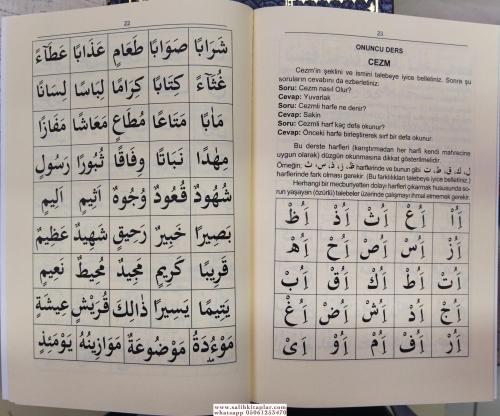 22
شَرَابًا صَوَابًا طَعَامٍ عَذَابًا عَطَاءً
غُثَاءً كِتَابًا كِرَامًا لِبَاسًا لِسَانًا
مَاٰبًا مَتَاعًا مُطَاعٍ مَعَاشًا مَفَازًا
مِهٰدًا نَبَاتًا وِفَاقًا ثُبُورًا رَسُولٍ
شُهُودٌ قُعُودٌ وُجُوهٌ اَثِيمٍ اَلِيمٍ
بَصِيرًا خَبِيرٌ رَحِيقٍ شَهِيدٌ عَظِيمٌ
قَرِيبًا كَرِيمٍ مَجِيدٌ مُحِيطٌ نَعِيمٍ
يَتِيمًا يَسِيرًا ذَالِكَ قُرَيْشٍ عِيشَةٍ
مَوْءُدَةُ مَوْضُوعَةٌ مَوَازِينُهُ يَوْمَئِذٍ
23
ONUNCU DERS
CEZM
Cezm'in şeklini ve ismini talebeye iyice belletiniz. Sonra şu
soruların cevabını da ezberletiniz:
Soru: Cezm nasıl Olur?
Cevap: Yuvarlak
Soru: Cezmli harfe ne denir?
Cevap: Sakin
Soru: Cezmli harf kaç defa okunur?
Cevap: Önceki harfe birleştirerek sırf bir defa okunur.
Bu derste harfleri (karıştırmadan her harfi kendi mahrecine
uygun olarak) düzgün okunmasına dikkat gösterilmelidir.
Örneğin; ظ, ز, ذ, س, ث harflerinde ve bunun gibi ل, ك, ق, ط, ت
harflerinde fark olması gerekir. (Bu farklılıkları talebeye iyice belletiniz.)
Herhangi bir mecburiyetten dolayı harfleri çıkarmak hususunda so-
run yaşayan (özürlü) talebeler üzerinde çalışmayı ihmal etmemek gerekir.
اَأْ اَعْ اَثْ اَذْ اَظْ
اَزْ اَسْ اَصْ اَحْ اَهْ
اَتْ اَطْ اَكْ اَقْ اَبْ
اَجْ اَدْ اَشْ اَضْ اَغْ
اَرْ اَفْ اَمْ اَوْ اَىْ
www.salihkitaplar.com
whatsapp 05061253470